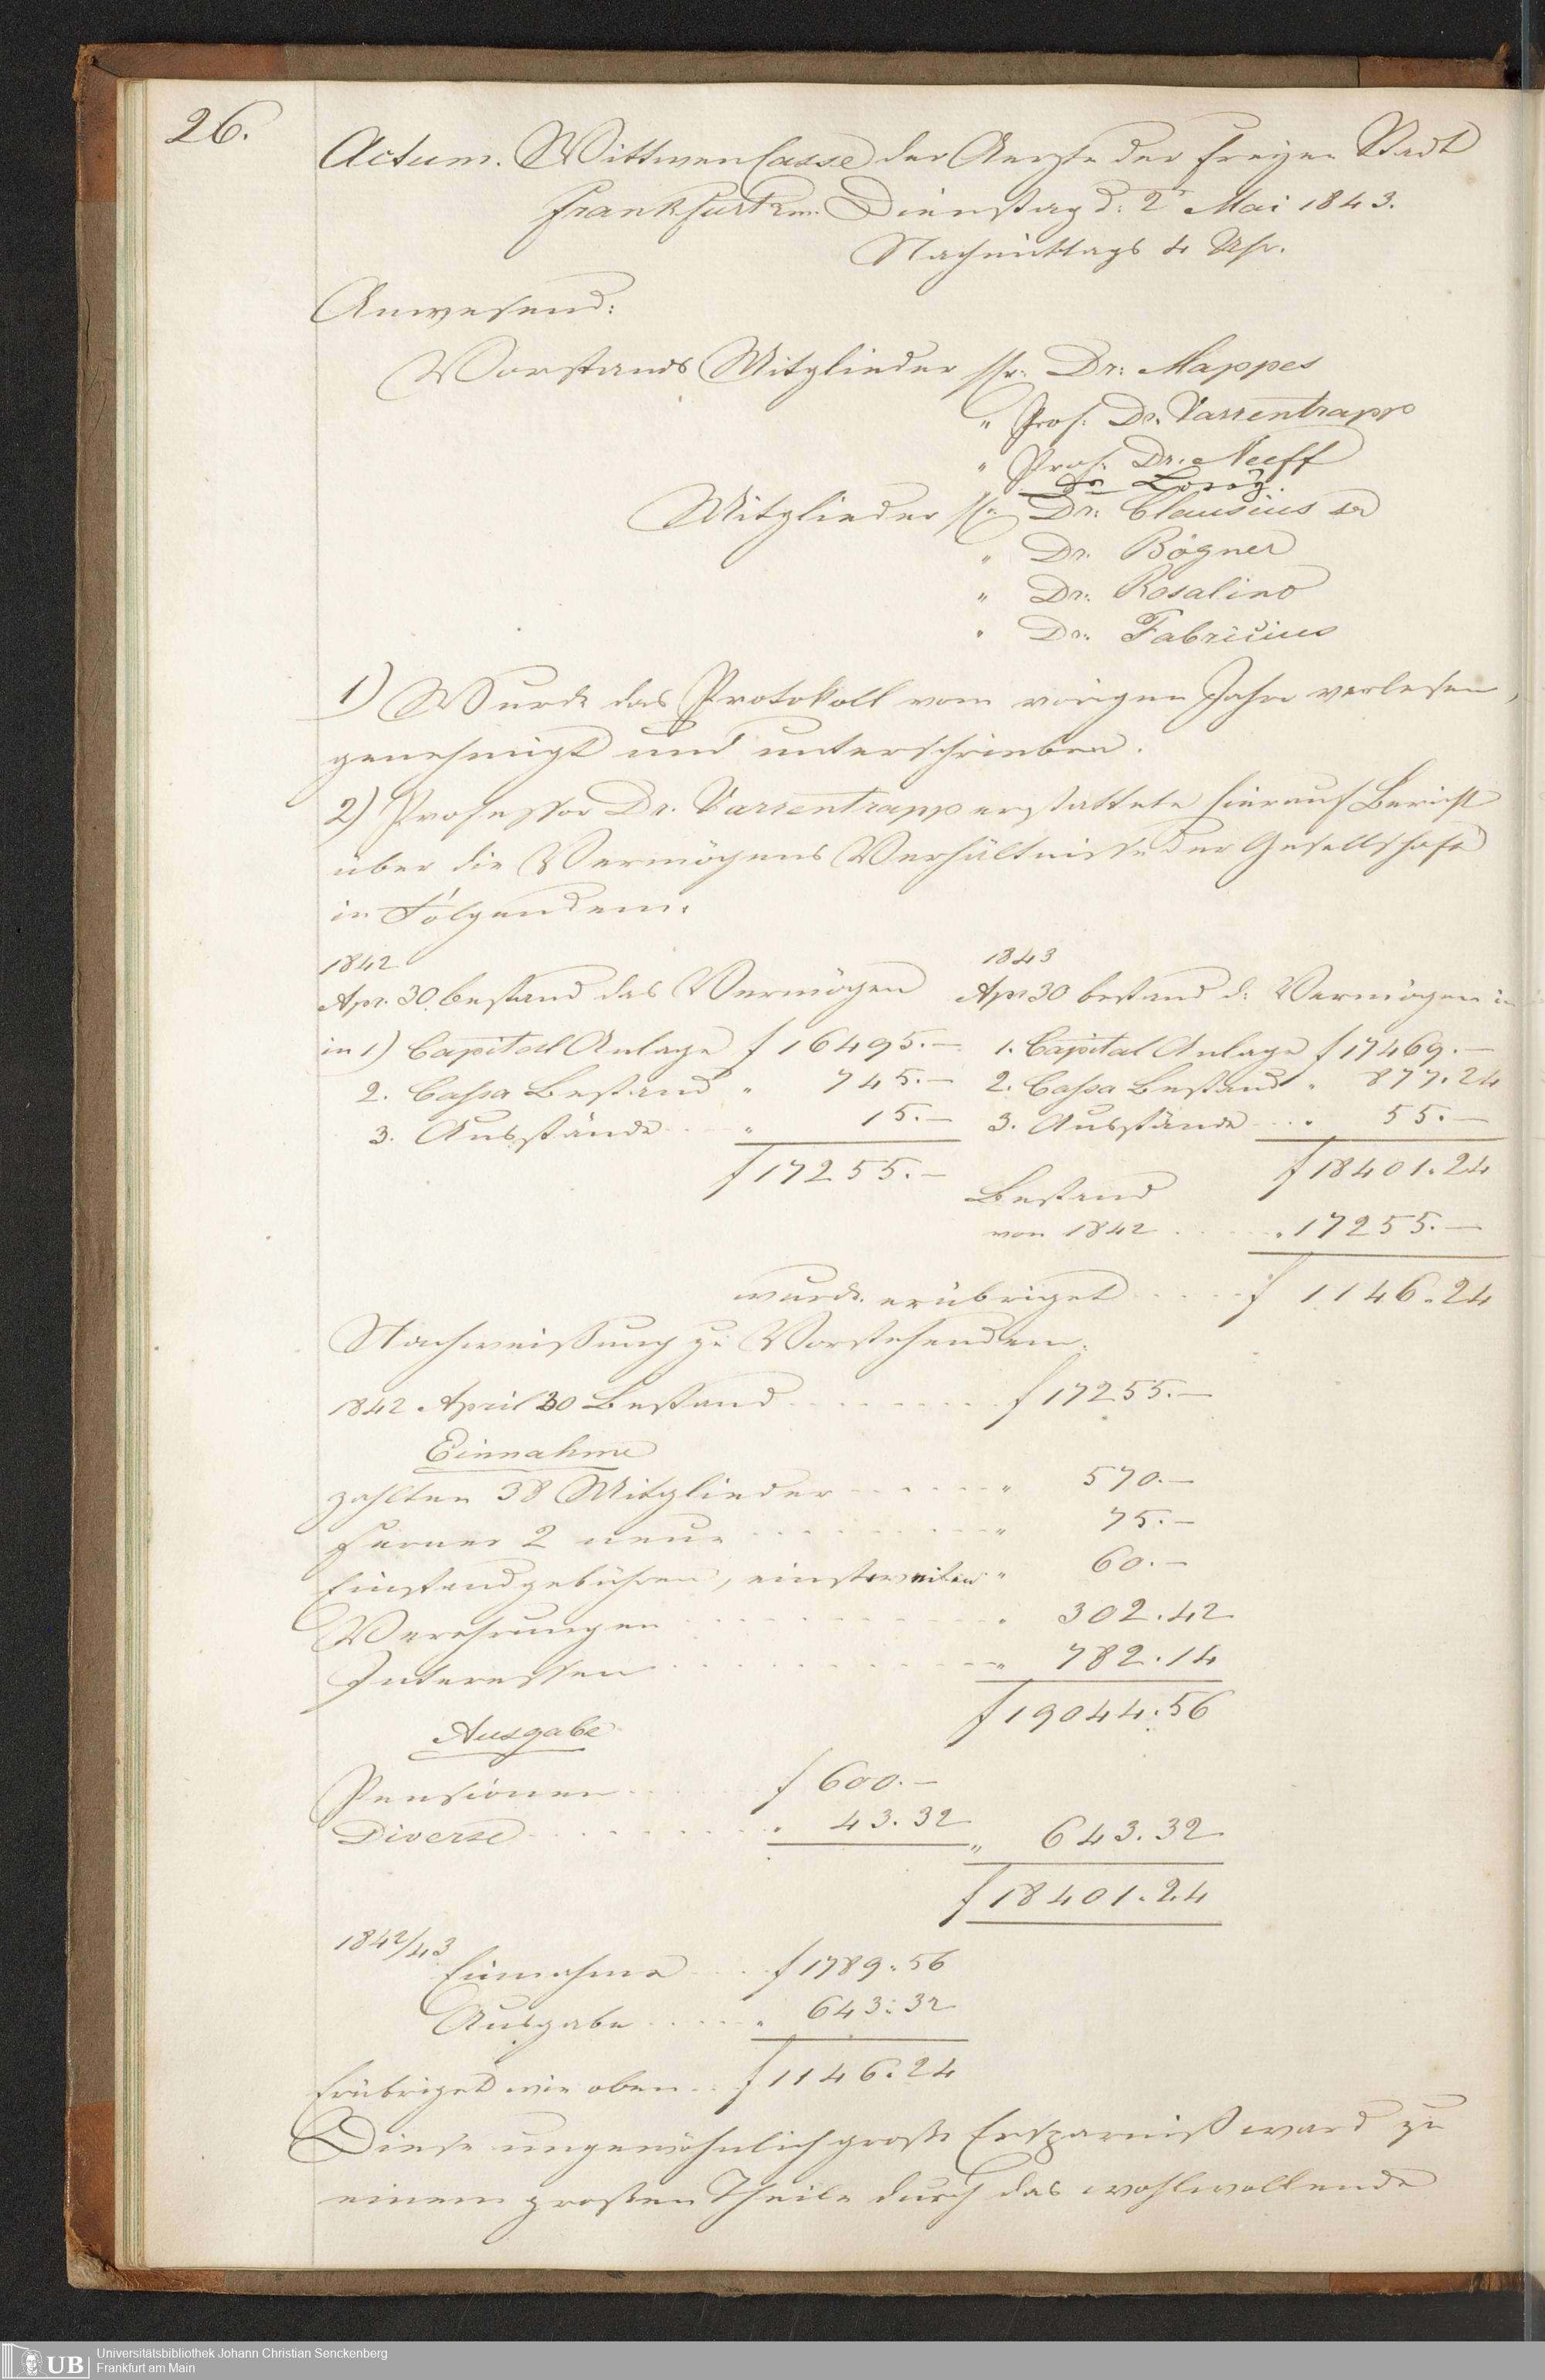 26.
Actum. Wittwen Casse der Aerzte der freyen Stadt
Frankfurt a/m. Dienstag d: 2r Mai 1843.
Nachmittags 4 Uhr.
Anwesend:
Vorstands Mitglieder Hr. Dr: Mappes
" Prof. Dr. Varrentrapp
" Prof. Dr. Neeff
Dr Lorey.
Mitglieder Hr. Dr: Clausius sr
" Dr. Bögner
" Dr: Rosalino
" Dr: Fabricius
1) Wurde das Protokoll vom vorigen Jahre verlesen,
genehmigt und unterschrieben.
2) Professor Dr. Varrentrapp erstattete hierauf Bericht
über die Vermögens Verhältnisse der Gesellschaft
in Folgendem:
1842
Apr. 30. bestand das Vermögen
in 1) Capital Anlage f 16495.—
2. Cassa Bestand " 745.—
3. Ausstände " 15.—
f 17255.—
1843
Apr 30 bestand d. Vermögen in
1. Capital Anlage f 17469.—
2. Cassa Bestand " 877.24
3. Ausstände .... " 55.—
f 18401.24
Bestand
von 1842 ..... " 17255.—
wurde erübriget ..... f 1146.24
Nachweissung zu Vorstehendem.
1842 April 30 Bestand ......... f 17255.—
Einnahme
zahlten 38 Mitglieder ...... " 570.—
ferner 2 neue ......... " 75.—
Einstandgebühren, einstweilen " 60.—
Verehrungen ......... " 302.42
Interessen ......... " 782.14
f 19044.56
Ausgabe
Pensionen ..... f 600.—
Diverse ......... " 43.32 " 643.32
f 18401.24
1842/43
Einnahme .... f 1789.56
Ausgabe ..... " 643.32
Erübriget wie oben ... f 1146.24
Diese ungewöhnlich große Ersparniß ward zu
einem großen Theile durch das wohlwollende
UB Universitätsbibliothek Johann Christian Senckenberg
Frankfurt am Main